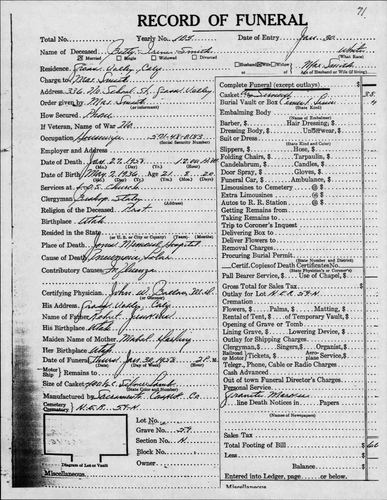 71
RECORD OF FUNERAL
Total No. Yearly No. 105 Date of Entry Jan. 30
Name of Deceased Betty Irene Smith White
Married Single Widowed Divorced (What Race)
Residence Grass Valley, Calif Mr. Smith
Charge to Mrs. Smith (or Husband or Wife if living)
Address 336 No School St, Grass Valley
Order given by Mrs. Smith
How Secured Phone
If Veteran, Name of War No
Occupation Housewife
(Social Security Number)
Employer and Address
Date of Death Jan. 27, 1958 12:00
Date of Birth May 7, 1936 Age 21 8 20
Services at L.D.S. Church
Clergyman Bishop
Religion of the Deceased Prot
Birthplace Utah
Resided in the State
(or U. S. or City or County)
Place of Death Jones Memorial Hospital
Cause of Death Pneumonia, Lobar
Contributory Causes Influenza
Certifying Physician John W. M.D.
His Address Grass Valley, Calif
Name of Father Robert
His Birthplace Utah
Maiden Name of Mother Mabel
Her Birthplace Utah
Date of Funeral Thurs Jan. 30, 1958 2 P.M.
Motor Ship Remains to
Size of Casket
Manufactured by Sacramento Casket Co.
Cemetery
Crematory
Diagram of Lot or Vault
Lot No.
Grave No. 59
Section No. N
Block No.
Owner
Miscellaneous
Complete Funeral (except outlays) $
Casket
Burial Vault or Box
(State Kind)
Embalming Body
Barber, $ Hair Dressing, $
Dressing Body, $ Underwear, $
Suit or Dress
(State Kind and Color)
Slippers, $ Hose, $
Folding Chairs, $ Tarpaulin, $
Candelabrum, $ Candles, $
Door Spray, $ Gloves, $
Funeral Car, $ Ambulance, $
Limousines to Cemetery @ $
Extra Limousines @ $
Autos to R. R. Station @ $
Getting Remains from
Taking Remains to
Trip to Coroner's Inquest
Delivering Box to
Deliver Flowers to
Removal Charges
Procuring Burial Permit
(State Number and District)
Certif. Copies of Death Certificates No.
(State Physician's or Coroner's)
Pall Bearer Service, $ Use of Chapel, $
Gross Total for Sales Tax $
Outlay for Lot
Cremation $
Flowers, $ Palms, $ Matting, $
Rental of Tent, $ of Temporary Vault, $
Opening of Grave or Tomb
Lining Grave, $ Lowering Device, $
Outlay for Shipping Charges
Clergyman, $ Singers, $ Organist, $
Railroad or Motor Tickets, $ Aeroplane Service, $
Telegr., Phone, Cable or Radio Charges
Cash Advanced
Out of town Funeral Director's Charges
Personal Service
line Death Notices in Papers
(Names of Newspapers)
Sales Tax $
Total Footing of Bill $
Less
Balance $
Entered into Ledger, page or below.
Miscellaneous